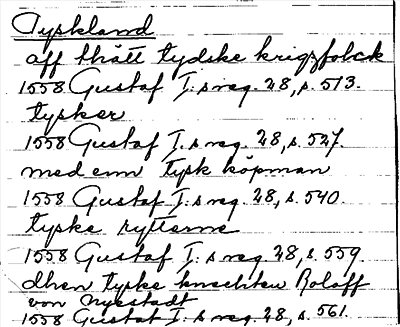 Tyskland
aff thätt tydske krigzfolck
1558 Gustaf I:s reg. 28, s. 513.
tysker
1558 Gustaf I:s reg. 28, s. 527.
med enn tysk köpman
1558 Gustaf I:s reg. 28, s. 540.
tyske rytterne
1558 Gustaf I:s reg. 28, s. 559.
dhen tyske knechten Roloff
von Nyestadt
1558 Gustaf I:s reg. 28, s. 561.